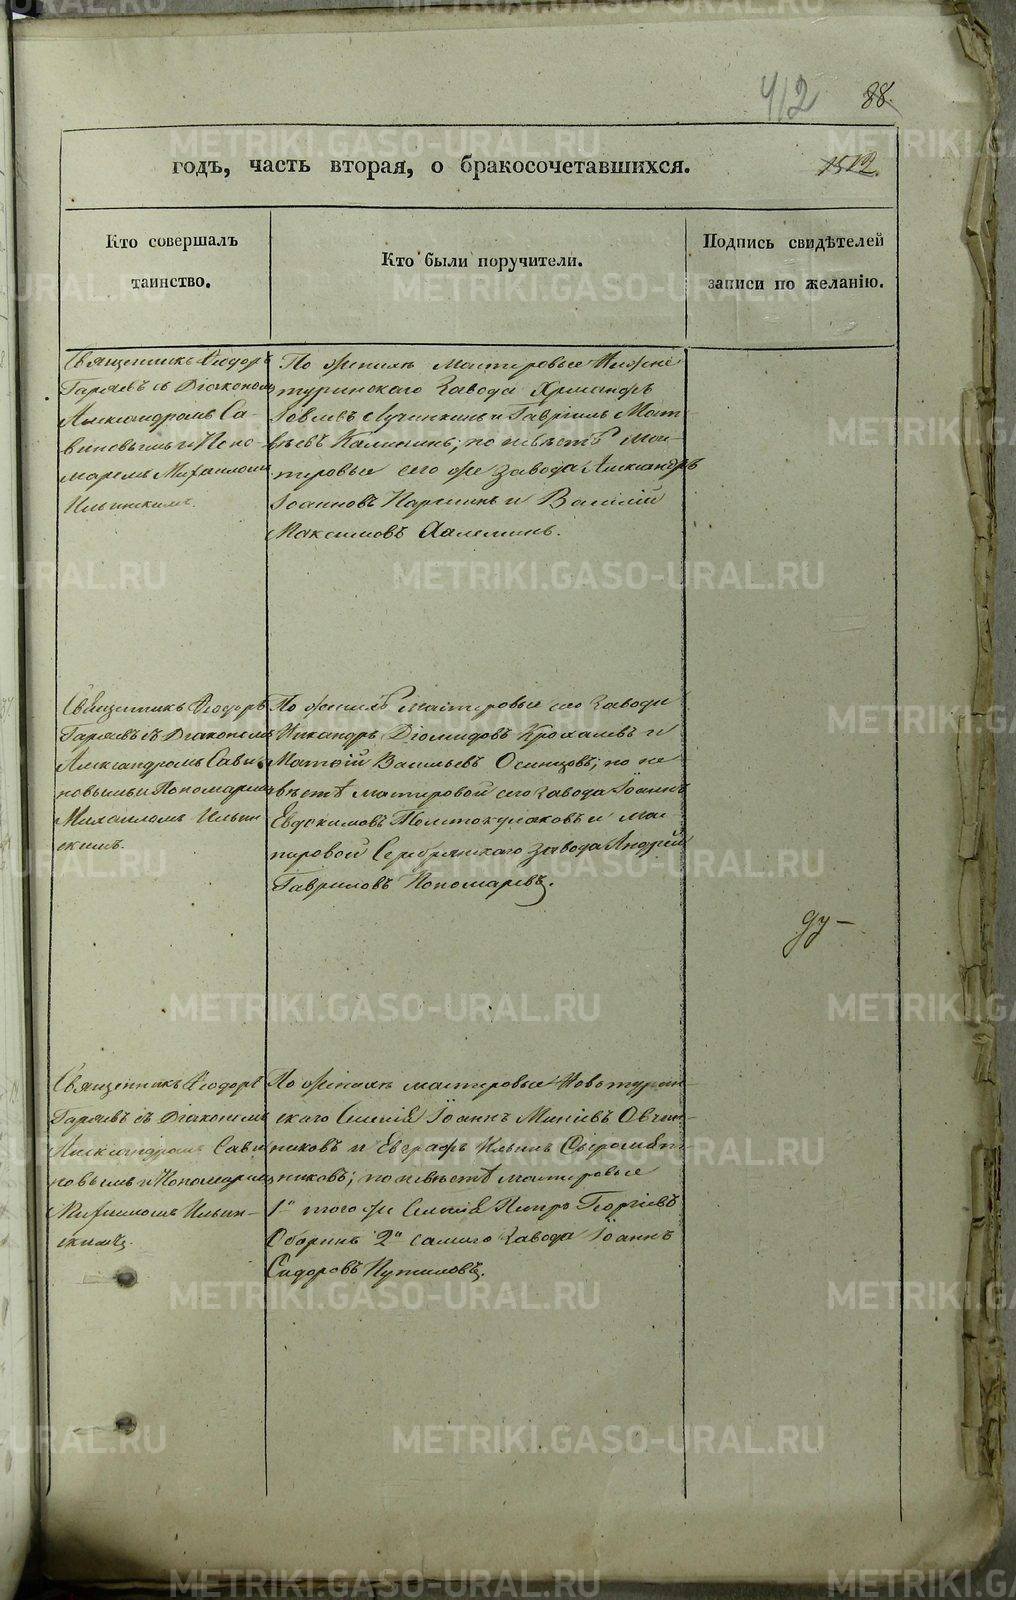 412 88.
годъ, часть вторая, о бракосочетавшихся. 1512.
Кто совершалъ
таинство.
Кто были поручители.
Подпись свидѣтелей
записи по желанію.
Священникъ Ѳеодоръ
Гаряевъ съ Діакономъ
Александромъ Са-
виновымъ и Поно-
маремъ Михаиломъ
Ильинскимъ.
По женихѣ мастеровые Нижне
туринскаго завода
Іовлевъ Лучинкинъ и Гавріилъ Мат
вѣевъ Калининъ; по невѣстѣ мас-
теровые сего же завода Александръ
Іоанновъ и Василій
Максимовъ Халеминъ.
Священникъ Ѳеодоръ
Гаряевъ съ Діакономъ
Александромъ Сави-
новымъ и Пономаремъ
Михаиломъ Ильин
скимъ.
По женихѣ мастеровые сего завода
Никандръ Діомидовъ Крохалевъ и
Матѳій Васильевъ Осинцовъ; по не
вѣстѣ мастеровой сего завода Іоаннъ
Евдокимовъ Полетокулаковъ и мас-
теровой Серебрянскаго завода Андрей
Гавриловъ Пономаревъ.
ду —
Священникъ Ѳеодоръ
Гаряевъ съ Діакономъ
Александромъ Сави
новымъ и Пономаремъ
Михаиломъ Ильин-
скимъ.
По женихѣ мастеровые Новотурин-
скаго Селенія Іоаннъ Минѣевъ Овчин-
никовъ и Евграфъ Ильинъ Сыромят
никовъ; по невѣстѣ мастеровые
1й того же Селенія Петръ Георгіевъ
Обаринъ 2й самаго завода Іоаннъ
Сидоровъ Путиловъ.
METRIKI.GASO-URAL.RU